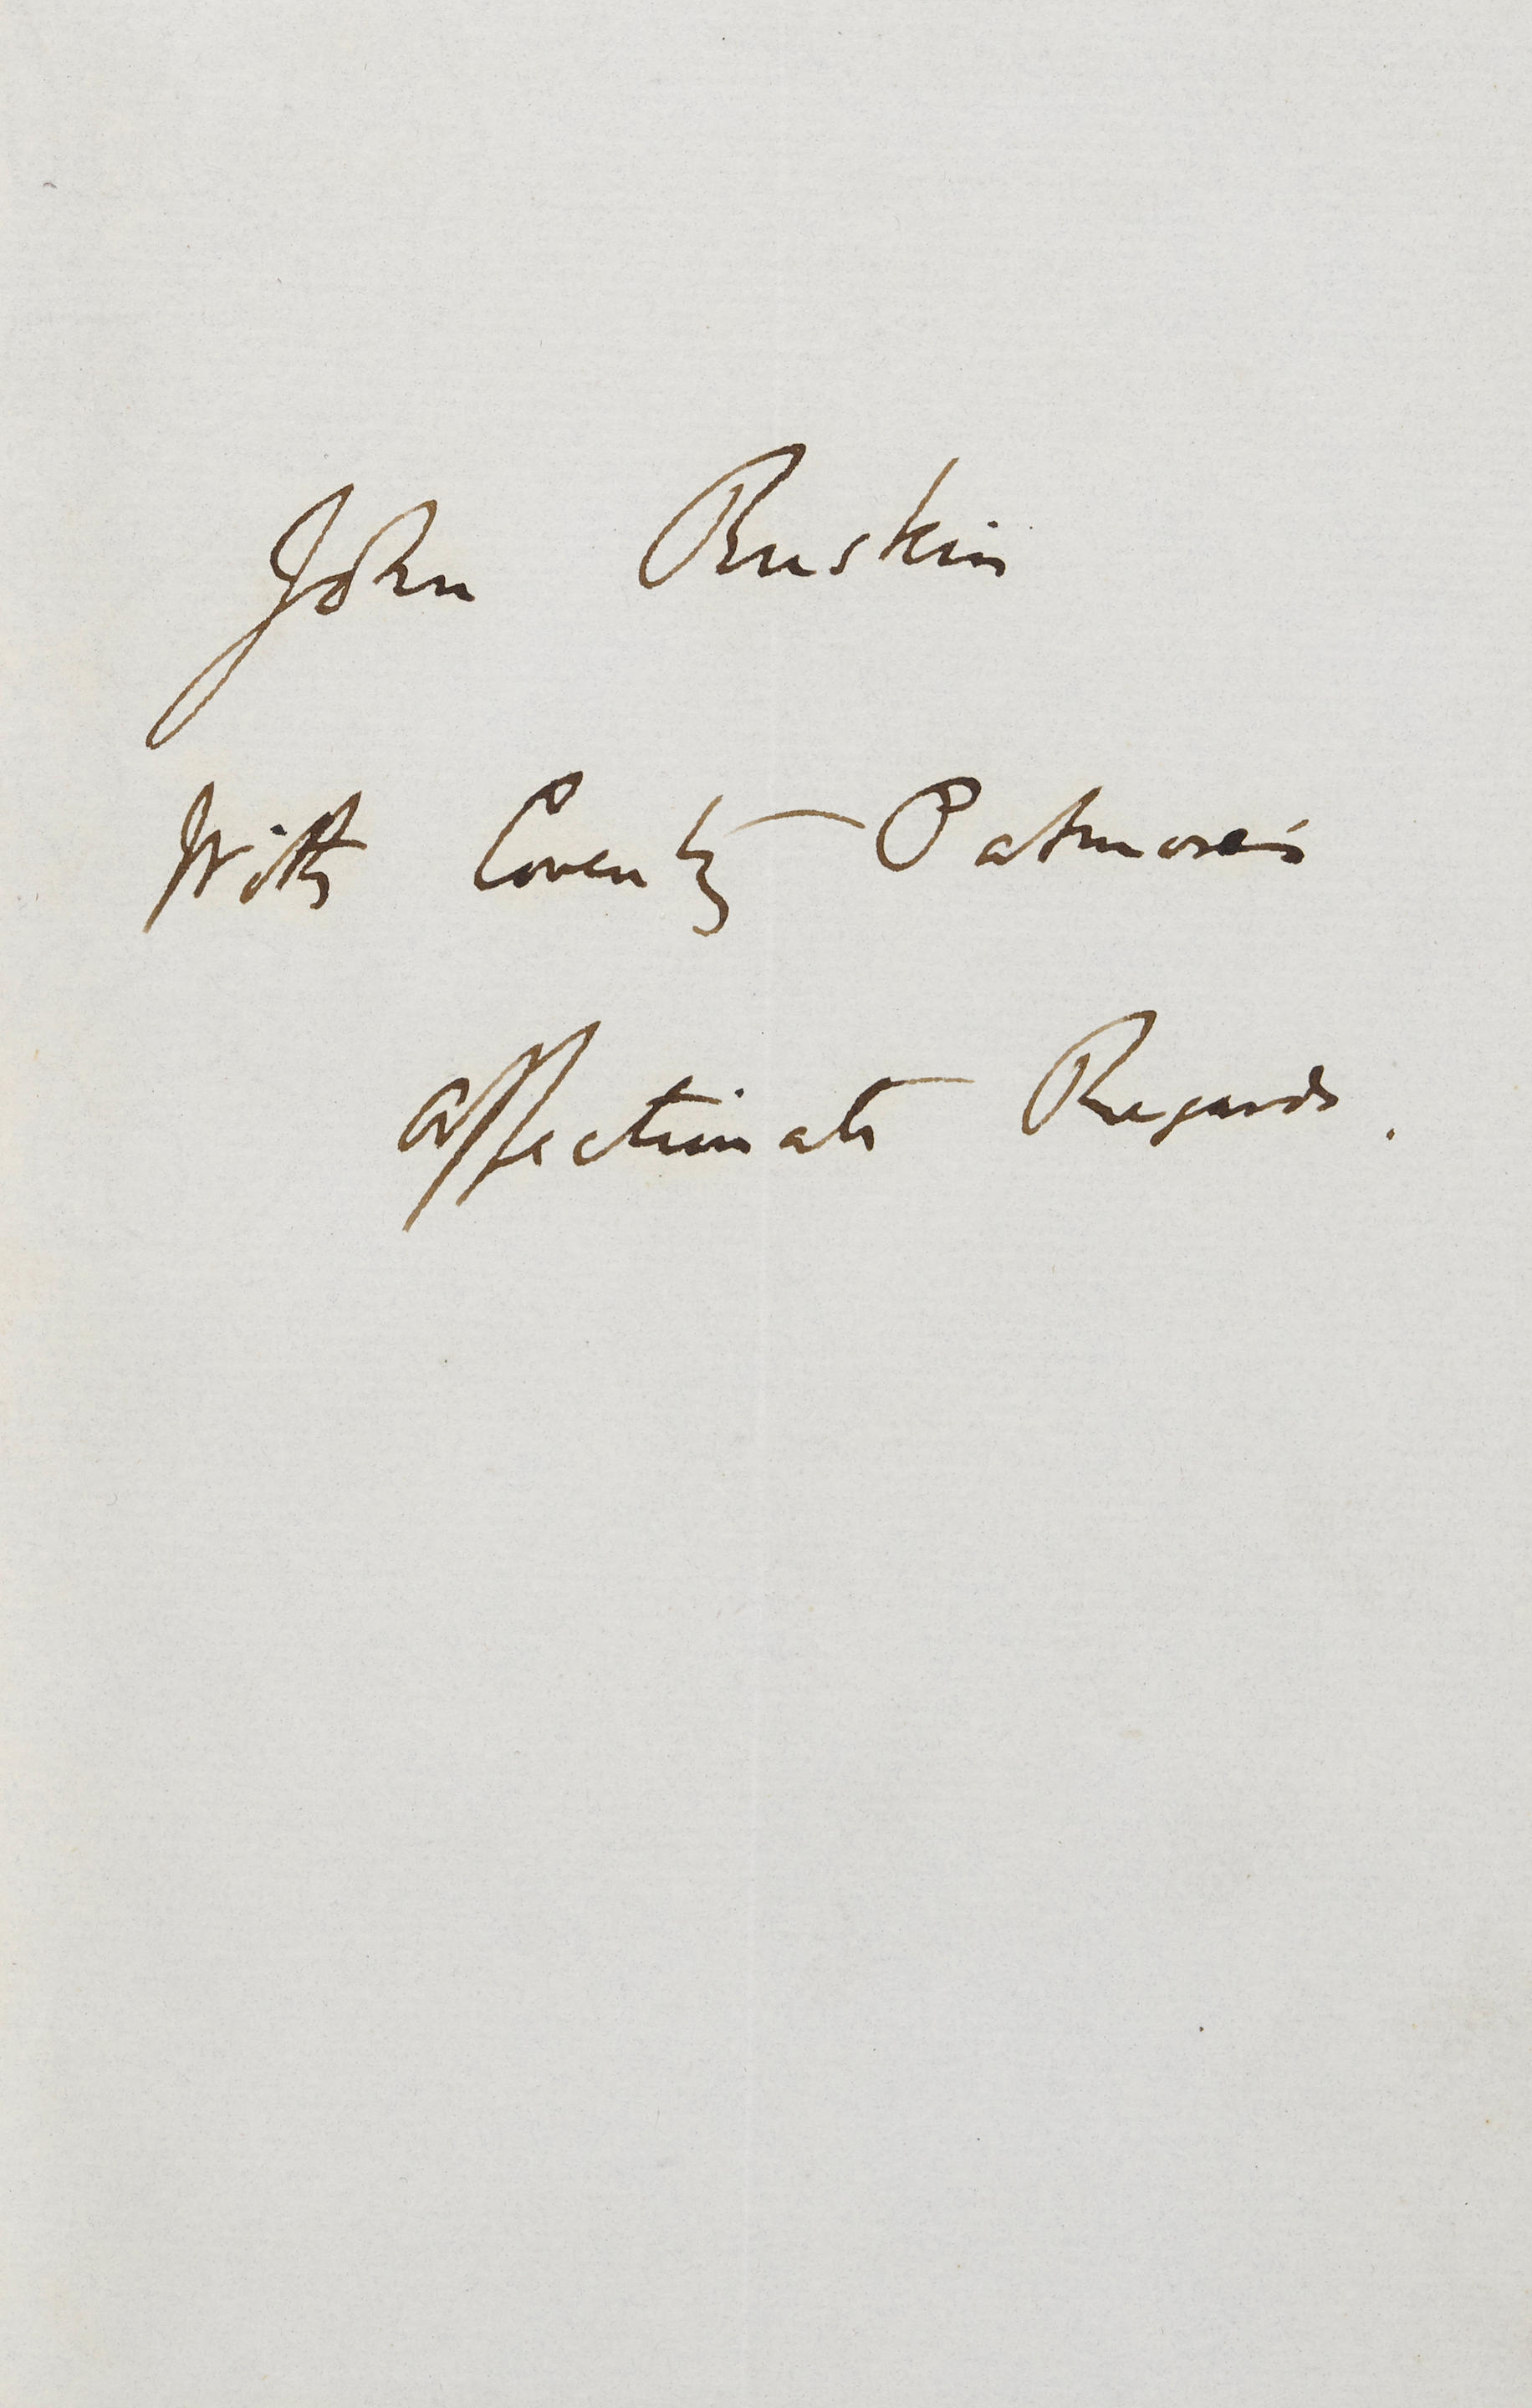 John Ruskin
With Coventry Patmore's
affectionate Regards.